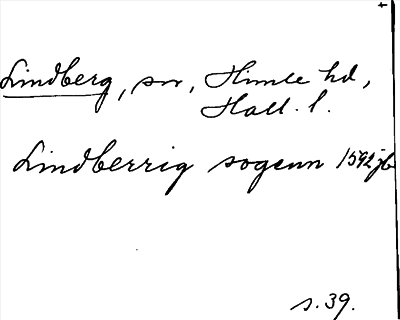 Lindberg, sn, Himle hd,
Hall. l.
Lindberrig sogenn 1592 jb
s. 39.